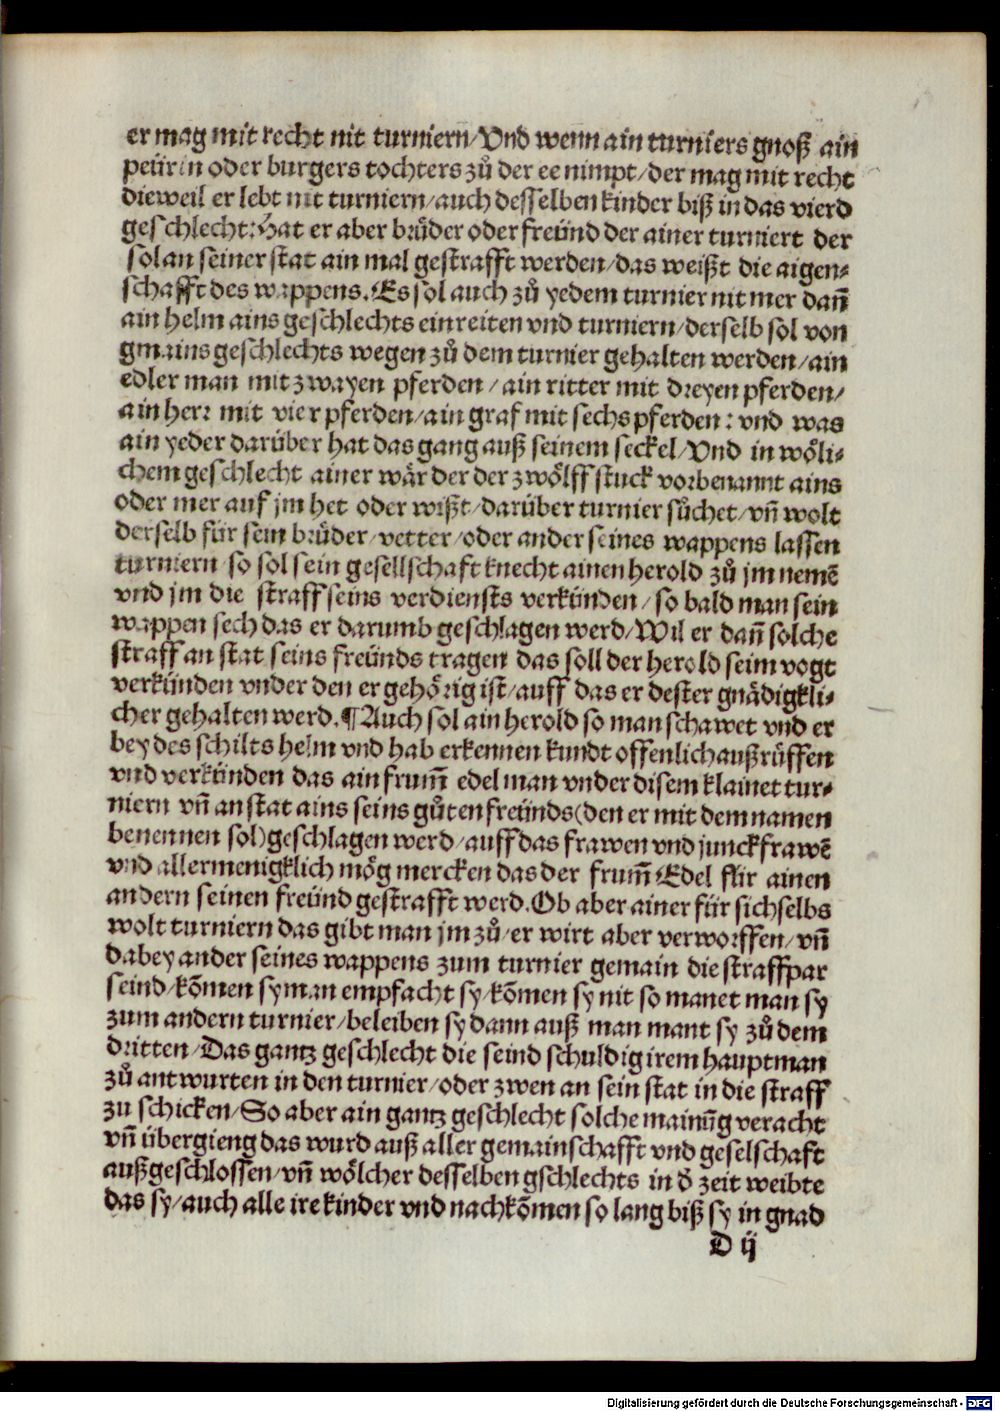 er mag mit recht nit turniern/Vnd wenn ain turniers gnoß ain
peürin oder burgers tochters zů der ee nimpt/der mag mit recht
dieweil er lebt nit turniern/auch desselben kinder biß in das vierd
geschlecht: Hat er aber brůder oder freünd der ainer turniert der
sol an seiner stat ain mal gestrafft werden/das weißt die aigen⸗
schafft des wappens. Es sol auch zů yedem turnier nit mer dañ
ain helm ains geschlechts einreiten vnd turniern/derselb sol von
gmains geschlechts wegen zů dem turnier gehalten werden/ain
edler man mit zwayen pferden/ain ritter mit dreyen pferden/
ain herr mit vier pferden/ain graf mit sechs pferden: vnd was
ain yeder darüber hat das gang auß seinem seckel/Vnd in wöli⸗
chem geschlecht ainer wär der der zwölff stuck vorbenannt ains
oder mer auf jm het oder wißt/darüber turnier sůchet/vñ wolt
derselb für sein brůder/vetter/oder ander seines wappens lassen
turniern/so sol sein gesellschaft knecht ainen herold zů jm nemẽ
vnd jm die straff seins verdiensts verkünden/so bald man sein
wappen sech das er darumb geschlagen werd/Wil er dañ solche
straff an stat seins freünds tragen das soll der herold seim vogt
verkünden vnder den er gehörig ist/auff das er dester gnädigkli⸗
cher gehalten werd.¶Auch sol ain herold so man schawet vnd er
bey des schilts helm vnd hab erkennen kundt offenlich außrůffen
vnd verkünden das ain frum̃ edel man vnder disem klainet tur⸗
niern vñ an stat ains seins gůten freünds(den er mit dem namen
benennen sol)geschlagen werd/auff das frawen vnd junckfrawẽ
vnd allermenigklich mög mercken das der frum̃ Edel für ainen
andern seinen freünd gestrafft werd. Ob aber ainer für sich selbs
wolt turniern das gibt man jm zů/er wirt aber verworffen/vñ
dabey ander seines wappens zum turnier gemain die straffpar
seind/kõmen sy man empfacht sy/kõmen sy nit so manet man sy
zum andern turnier/beleiben sy dann auß man mant sy zů dem
dritten/Das gantz geschlecht die seind schuldig irem hauptman
zů antwurten in den turnier/oder zwen an sein stat in die straff
zu schicken/So aber ain gantz geschlecht solche mainũg veracht
vñ übergieng das wurd auß aller gemainschafft vnd geselschaft
außgeschlossen/vñ wölcher desselben gschlechts in d̓ zeit weibte
das sy/auch alle ire kinder vnd nachkõmen so lang biß sy in gnad
D ij
Digitalisierung gefördert durch die Deutsche Forschungsgemeinschaft - DFG